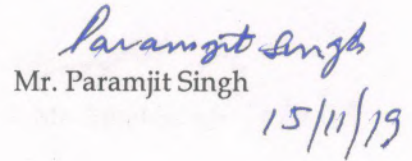 Paramjit Singh
Mr. Paramjit Singh
15/11/19